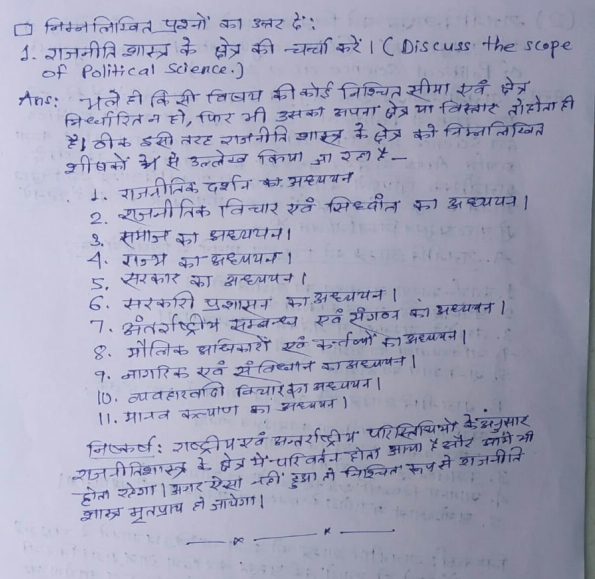 □ निम्नलिखित प्रश्नों का उत्तर दें:
1. राजनीति शास्त्र के क्षेत्र की चर्चा करें। (Discuss the scope
of Political Science.)
Ans: भले ही किसी विषय की कोई निश्चित सीमा एवं क्षेत्र
निर्धारित न हो, फिर भी उसका अपना क्षेत्र या विस्तार तो होता ही
है। ठीक इसी तरह राजनीति शास्त्र के क्षेत्र को निम्नलिखित
शीर्षकों में से उल्लेख किया जा रहा है—
1. राजनीतिक दर्शन का अध्ययन
2. राजनीतिक विचार एवं सिध्दांत का अध्ययन।
3. समाज का अध्ययन।
4. राज्य का अध्ययन।
5. सरकार का अध्ययन।
6. सरकारी प्रशासन का अध्ययन।
7. अंतर्राष्ट्रीय सम्बन्ध एवं संगठन का अध्ययन।
8. मौलिक अधिकारों एवं कर्तव्यों का अध्ययन।
9. नागरिक एवं संविधान का अध्ययन।
10. व्यवहारवादी विचार का अध्ययन।
11. मानव कल्याण का अध्ययन।
निष्कर्ष: राष्ट्रीय एवं अन्तर्राष्ट्रीय परिस्थितियों के अनुसार
राजनीतिशास्त्र के क्षेत्र में परिवर्तन होता आया है और आगे भी
होता रहेगा। अगर ऐसा नहीं हुआ तो निश्चित रूप से राजनीति
शास्त्र मृतप्राय हो जायेगा।